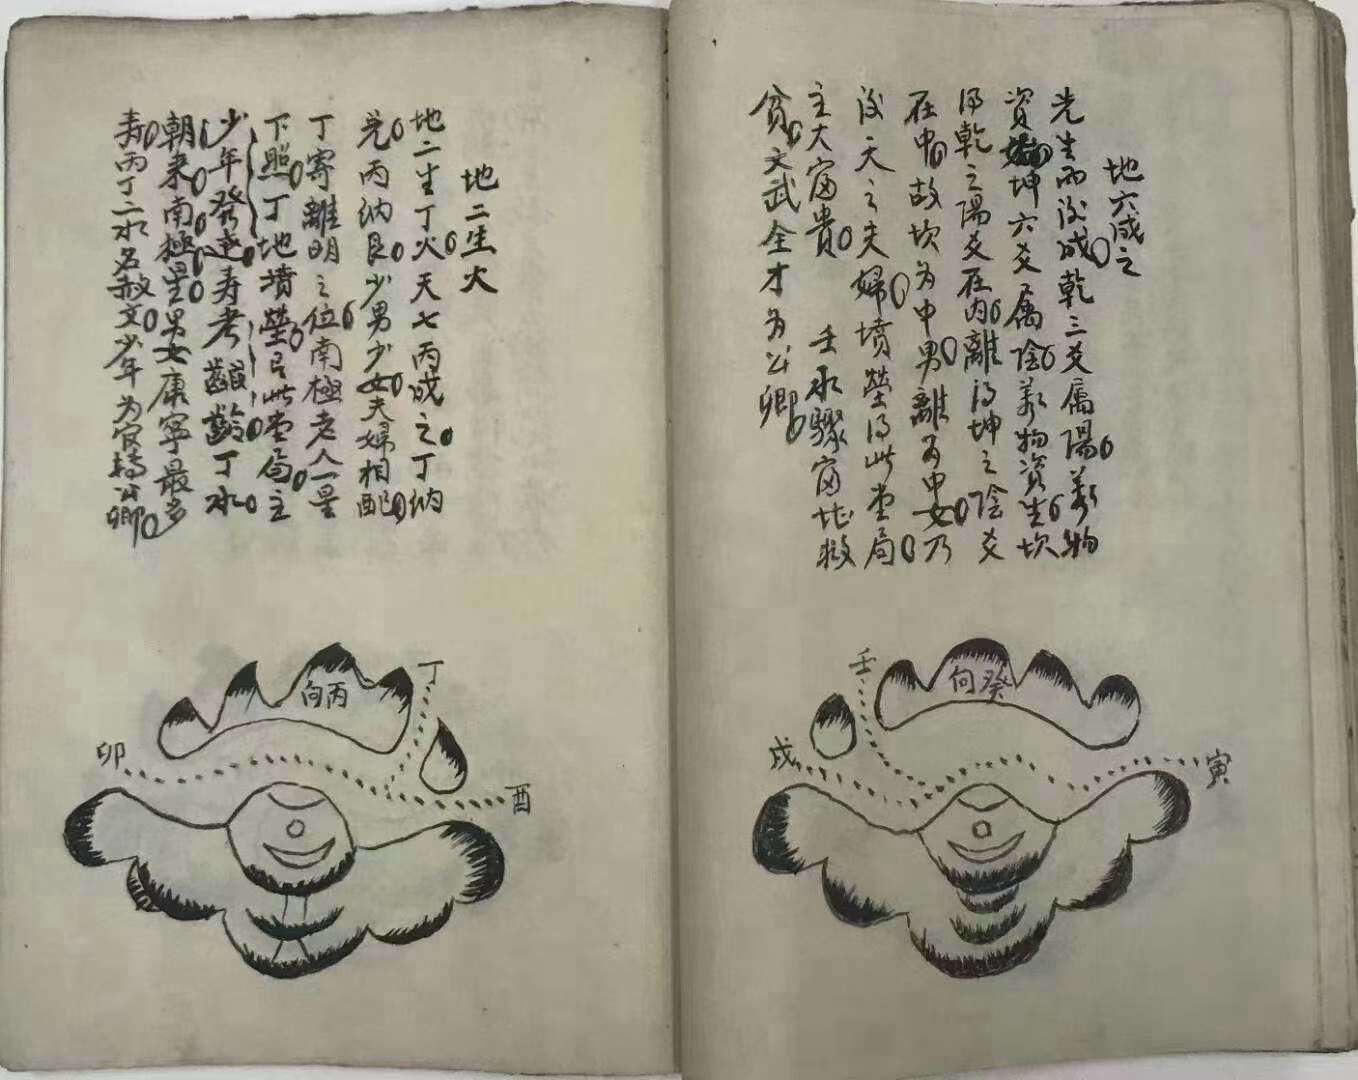 地六成之
先生而後成乾三爻属陽萬物
資始坤六爻属陰萬物資生坎
得乾之陽爻在内離得坤之陰爻
在中故坎为中男離为中女乃
後天之夫婦墳塋得此堂局
主大富貴 壬水驟富北救
貧文武全才为公卿
壬
向癸
戌
寅
地二生火
地二生丁火天七丙成之丁纳
兑丙纳艮少男少女夫婦相配
丁寄離明之位南極老人一星
下照丁地墳塋得此堂局主
少年發達寿考齠齡丁水
朝来南極星男女康寧最多
寿丙丁二水名赦文少年为官 公卿
丁
向丙
卯
酉